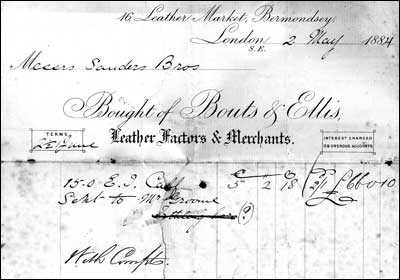 16, Leather Market, Bermondsey,
London 2 May 1884
S.E.
Messrs Sanders Bros
Bought of Bouts & Ellis,
TERMS
Leather Factors & Merchants.
INTEREST CHARGED
ON OVERDUE ACCOUNTS
150 E. I. Calf 5 2 18 2/1 £60 0 10
Sent to Mr Groome
(?)
With Compts.